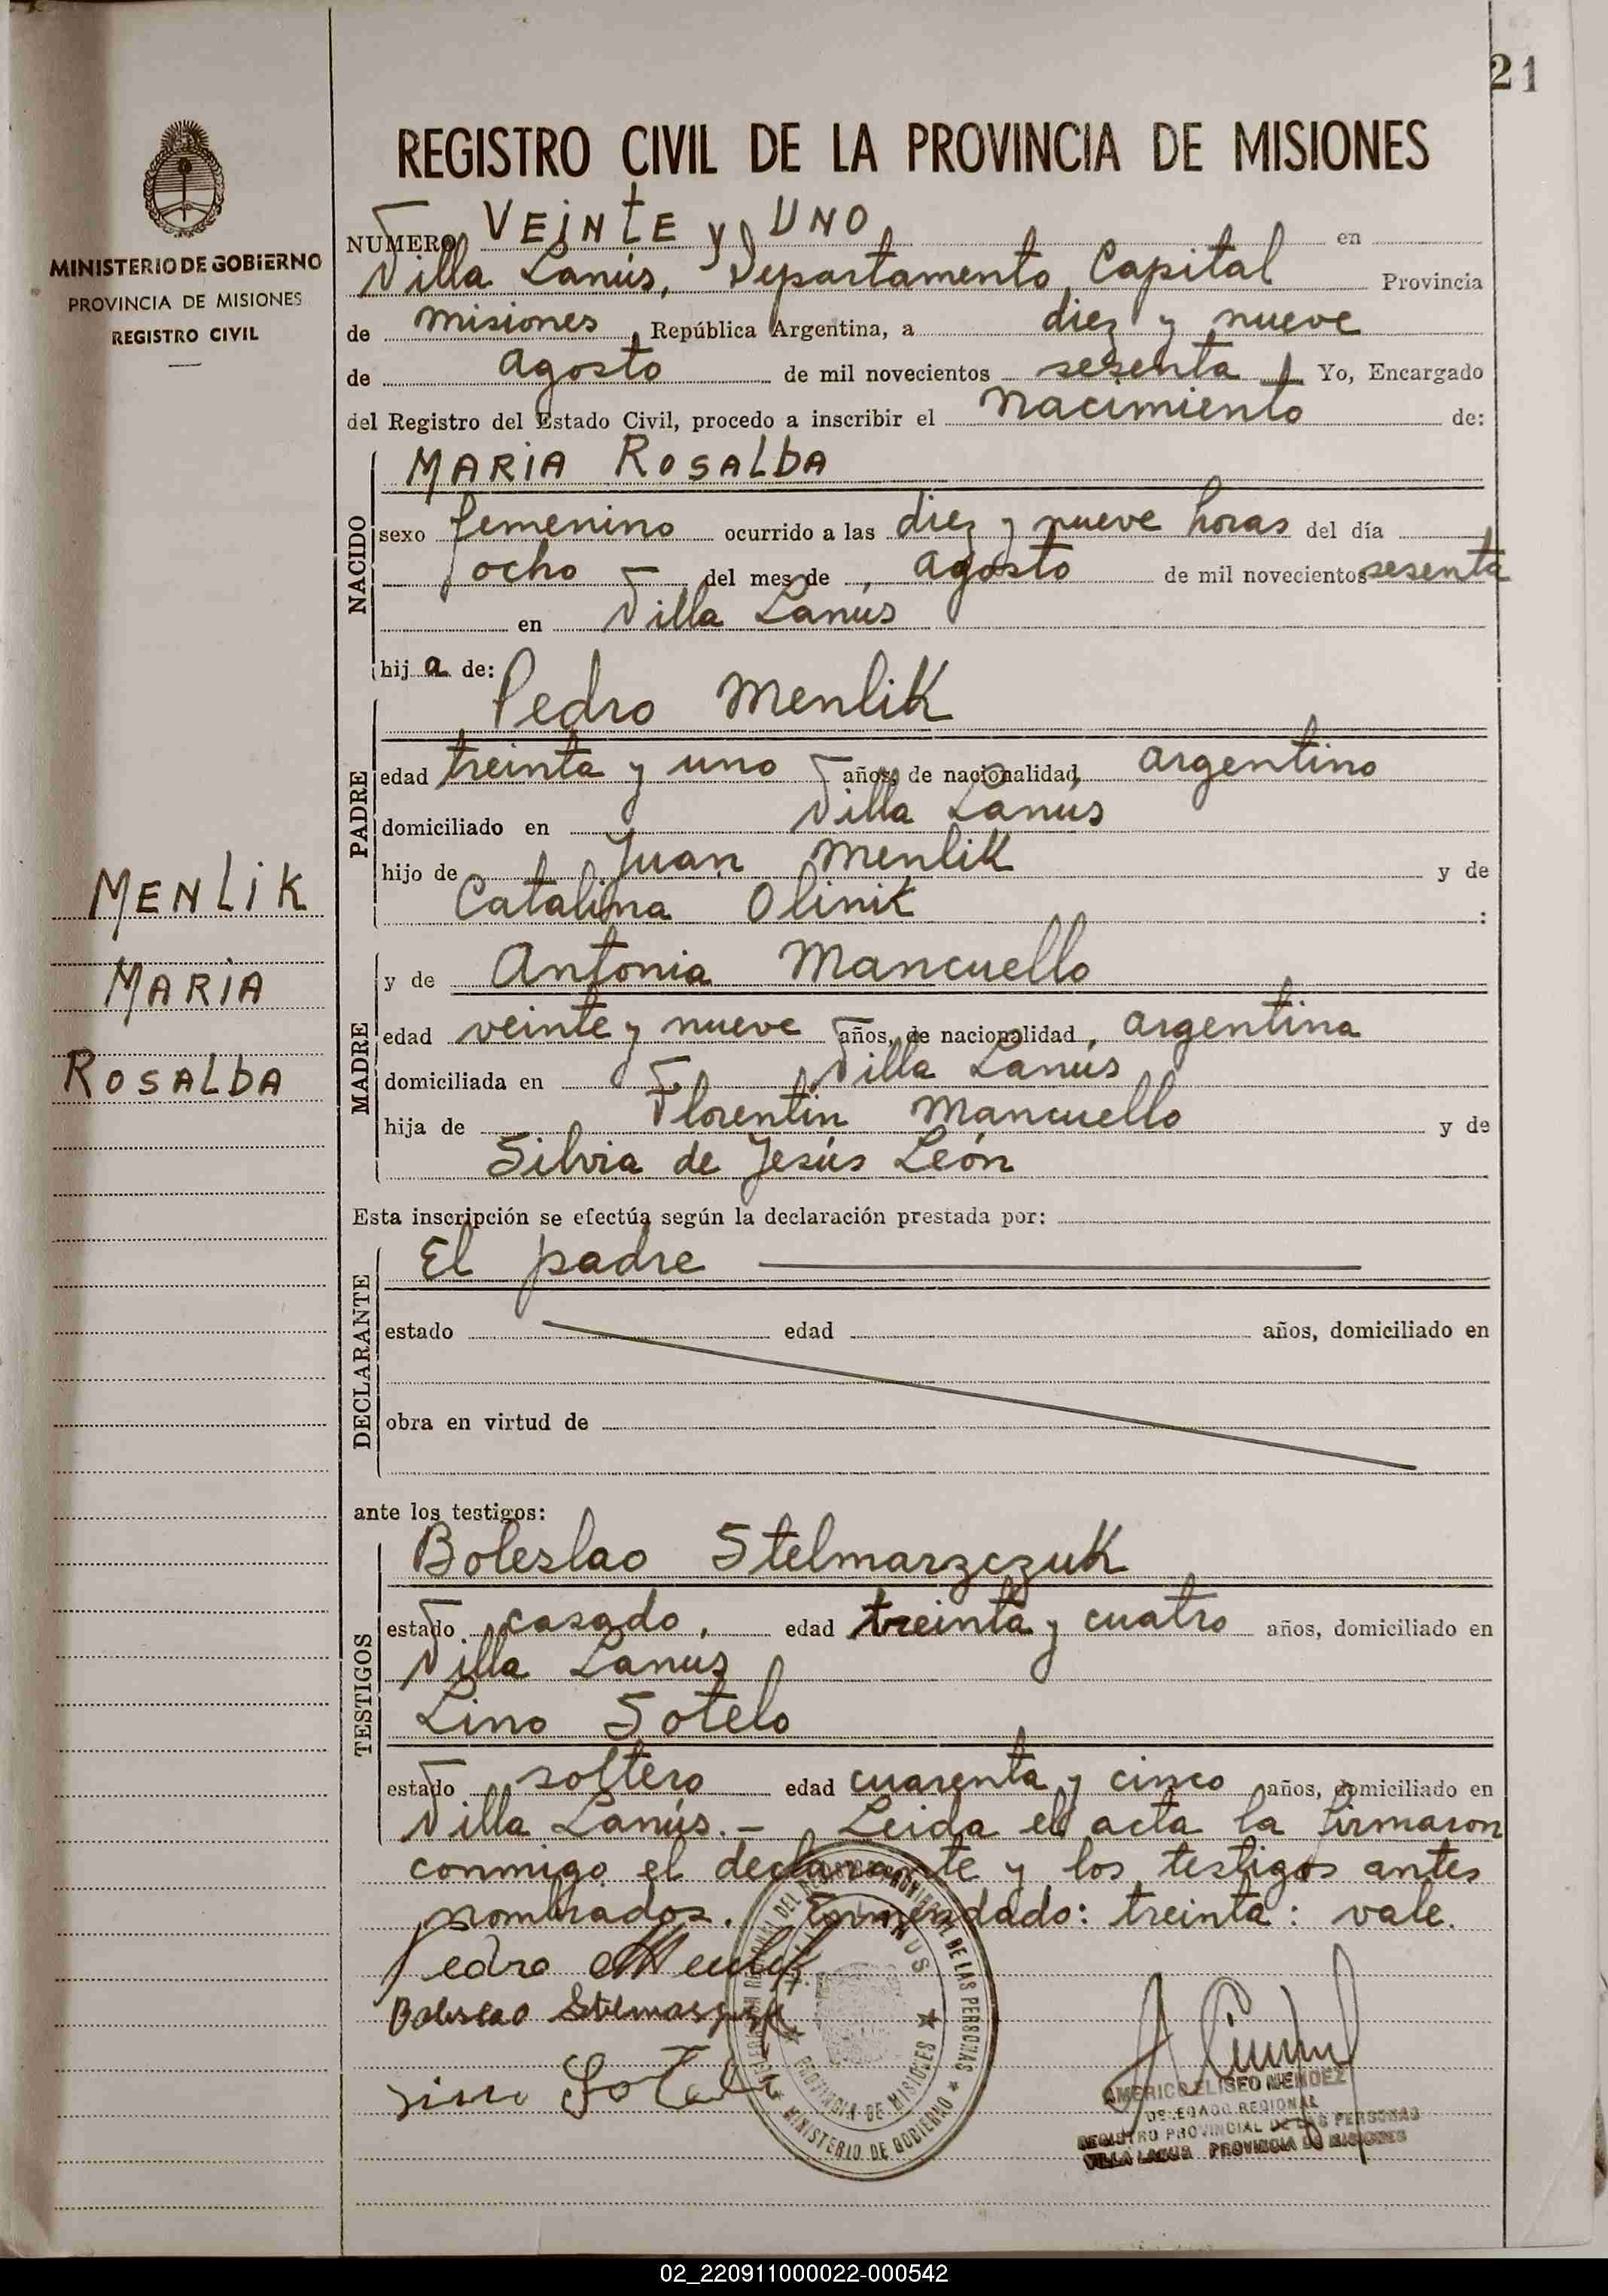 21
MINISTERIO DE GOBIERNO
PROVINCIA DE MISIONES
REGISTRO CIVIL
MENLIK
MARIA
ROSALBA
REGISTRO CIVIL DE LA PROVINCIA DE MISIONES
NUMERO VEINTE y UNO en
Villa Lanús, Departamento Capital Provincia
de Misiones República Argentina, a diez y nueve
de agosto de mil novecientos sesenta Yo, Encargado
del Registro del Estado Civil, procedo a inscribir el nacimiento de:
NACIDO
MARIA ROSALBA
sexo femenino ocurrido a las diez y nueve horas del día
ocho del mes de agosto de mil novecientos sesenta
en Villa Lanús
hij a de:
PADRE
Pedro Menlik
edad treinta y uno años, de nacionalidad argentino
domiciliado en Villa Lanús
hijo de Juan Menlik y de
Catalina Olinik :
MADRE
y de Antonia Mancuello
edad veinte y nueve años, de nacionalidad, argentina
domiciliada en Villa Lanús
hija de Florentin Mancuello y de
Silvia de Jesús León
Esta inscripción se efectúa según la declaración prestada por:
DECLARANTE
El padre
estado edad años, domiciliado en
obra en virtud de
ante los testigos:
TESTIGOS
Boleslao Stelmarzczuk
estado casado, edad treinta y cuatro años, domiciliado en
Villa Lanus
Lino Sotelo
estado soltero edad cuarenta y cinco años, domiciliado en
Villa Lanús.- Leida el acta la firmaron
conmigo el declarante y los testigos antes
nombrados. Enmendado: treinta: vale.
Pedro Menlik
Boleslao
Lino Sotelo
PROVINCIA DE MISIONES
MINISTERIO DE GOBIERNO
AMERICO ELISEO MENDEZ
DELEGADO REGIONAL
REGISTRO PROVINCIAL DE LAS PERSONAS
VILLA LANUS PROVINCIA DE MISIONES
02_220911000022-000542